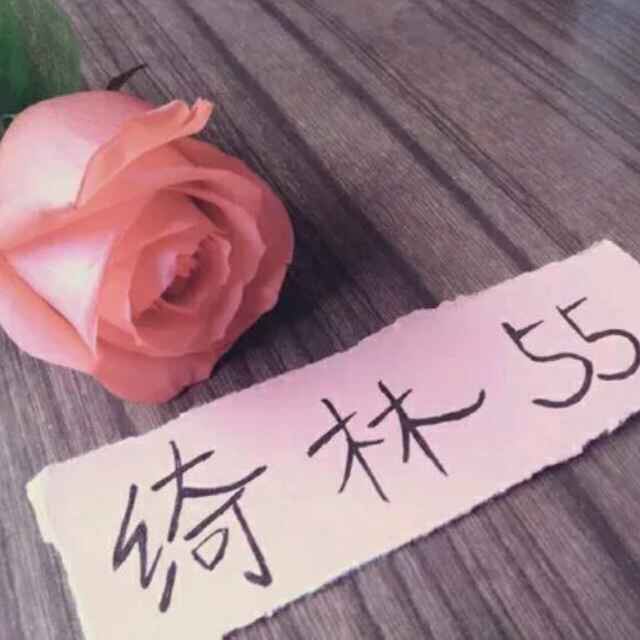 绮林55